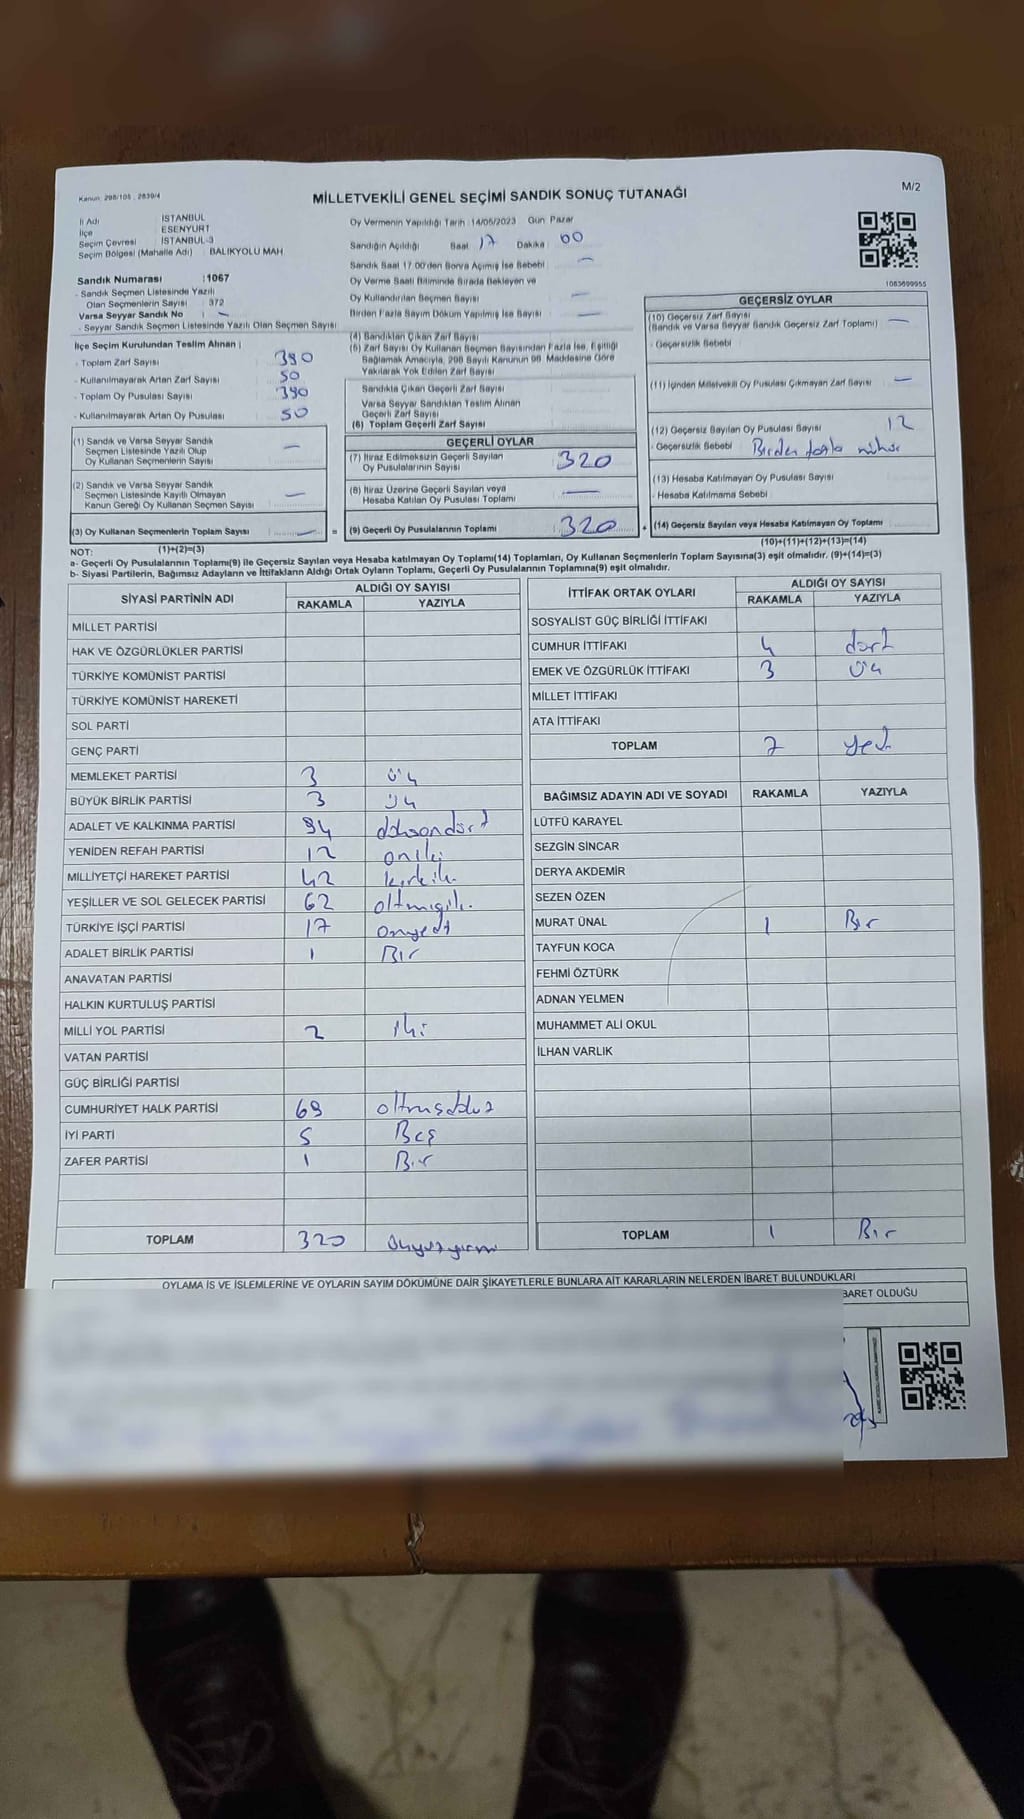 Kanun: 298/105 : 2839/4
MİLLETVEKİLİ GENEL SEÇİMİ SANDIK SONUÇ TUTANAĞI
M/2
İl Adı : İSTANBUL
İlçe : ESENYURT
Seçim Çevresi : İSTANBUL-3
Seçim Bölgesi (Mahalle Adı) : BALIKYOLU MAH
Oy Vermenin Yapıldığı Tarih :14/05/2023 Gün: Pazar
Sandığın Açıldığı Saat 17 Dakika : 00
Sandık Saat 17.00'den Sonra Açılmış İse Sebebi : —
Oy Verme Saati Bitiminde Sırada Bekleyen ve
Oy Kullandırılan Seçmen Sayısı —
Birden Fazla Sayım Döküm Yapılmış İse Sayısı : —
1083699955
Sandık Numarası :1067
- Sandık Seçmen Listesinde Yazılı
Olan Seçmenlerin Sayısı : 372
Varsa Seyyar Sandık No : —
- Seyyar Sandık Seçmen Listesinde Yazılı Olan Seçmen Sayısı :
İlçe Seçim Kurulundan Teslim Alınan :
- Toplam Zarf Sayısı 390
- Kullanılmayarak Artan Zarf Sayısı 50
- Toplam Oy Pusulası Sayısı 390
- Kullanılmayarak Artan Oy Pusulası 50
(1) Sandık ve Varsa Seyyar Sandık
Seçmen Listesinde Yazılı Olup
Oy Kullanan Seçmenlerin Sayısı —
(2) Sandık ve Varsa Seyyar Sandık
Seçmen Listesinde Kayıtlı Olmayan
Kanun Gereği Oy Kullanan Seçmen Sayısı —
(3) Oy Kullanan Seçmenlerin Toplam Sayısı — =
(1)+(2)=(3)
(4) Sandıktan Çıkan Zarf Sayısı
(5) Zarf Sayısı Oy Kullanan Seçmen Sayısından Fazla İse, Eşitliği
Bağlamak Amacıyla, 298 Sayılı Kanunun 98. Maddesine Göre
Yakılarak Yok Edilen Zarf Sayısı
Sandıkta Çıkan Geçerli Zarf Sayısı
Varsa Seyyar Sandıktan Teslim Alınan
Geçerli Zarf Sayısı
(6) Toplam Geçerli Zarf Sayısı
GEÇERLİ OYLAR
(7) İtiraz Edilmeksizin Geçerli Sayılan
Oy Pusulalarının Sayısı 320
(8) İtiraz Üzerine Geçerli Sayılan veya
Hesaba Katılan Oy Pusulası Toplamı —
(9) Geçerli Oy Pusulalarının Toplamı 320 +
GEÇERSİZ OYLAR
(10) Geçersiz Zarf Sayısı
(Sandık ve Varsa Seyyar Sandık Geçersiz Zarf Toplamı) —
- Geçersizlik Sebebi
(11) İçinden Milletvekili Oy Pusulası Çıkmayan Zarf Sayısı —
(12) Geçersiz Sayılan Oy Pusulası Sayısı 12
- Geçersizlik Sebebi Birden fazla mühür
(13) Hesaba Katılmayan Oy Pusulası Sayısı
- Hesaba Katılmama Sebebi
(14) Geçersiz Sayılan veya Hesaba Katılmayan Oy Toplamı
(10)+(11)+(12)+(13)=(14)
NOT:
a- Geçerli Oy Pusulalarının Toplamı(9) ile Geçersiz Sayılan veya Hesaba katılmayan Oy Toplamı(14) Toplamları, Oy Kullanan Seçmenlerin Toplam Sayısına(3) eşit olmalıdır. (9)+(14)=(3)
b- Siyasi Partilerin, Bağımsız Adayların ve İttifakların Aldığı Ortak Oyların Toplamı, Geçerli Oy Pusulalarının Toplamına(9) eşit olmalıdır.
SİYASİ PARTİNİN ADI ALDIĞI OY SAYISI
RAKAMLA YAZIYLA
MİLLET PARTİSİ
HAK VE ÖZGÜRLÜKLER PARTİSİ
TÜRKİYE KOMÜNİST PARTİSİ
TÜRKİYE KOMÜNİST HAREKETİ
SOL PARTİ
GENÇ PARTİ
MEMLEKET PARTİSİ 3 üç
BÜYÜK BİRLİK PARTİSİ 3 üç
ADALET VE KALKINMA PARTİSİ 94 doksandört
YENİDEN REFAH PARTİSİ 12 oniki
MİLLİYETÇİ HAREKET PARTİSİ 42 kırkiki
YEŞİLLER VE SOL GELECEK PARTİSİ 62 altmışiki
TÜRKİYE İŞÇİ PARTİSİ 17 onyedi
ADALET BİRLİK PARTİSİ 1 Bir
ANAVATAN PARTİSİ
HALKIN KURTULUŞ PARTİSİ
MİLLİ YOL PARTİSİ 2 iki
VATAN PARTİSİ
GÜÇ BİRLİĞİ PARTİSİ
CUMHURİYET HALK PARTİSİ 69 altmışdokuz
İYİ PARTİ 5 Beş
ZAFER PARTİSİ 1 Bir
TOPLAM 320 üçyüzyirmi
İTTİFAK ORTAK OYLARI ALDIĞI OY SAYISI
RAKAMLA YAZIYLA
SOSYALİST GÜÇ BİRLİĞİ İTTİFAKI
CUMHUR İTTİFAKI 4 dört
EMEK VE ÖZGÜRLÜK İTTİFAKI 3 üç
MİLLET İTTİFAKI
ATA İTTİFAKI
TOPLAM 7 yedi
BAĞIMSIZ ADAYIN ADI VE SOYADI RAKAMLA YAZIYLA
LÜTFÜ KARAYEL
SEZGİN SİNCAR
DERYA AKDEMİR
SEZEN ÖZEN
MURAT ÜNAL 1 Bir
TAYFUN KOCA
FEHMİ ÖZTÜRK
ADNAN YELMEN
MUHAMMET ALİ OKUL
İLHAN VARLIK
TOPLAM 1 Bir
OYLAMA İŞ VE İŞLEMLERİNE VE OYLARIN SAYIM DÖKÜMÜNE DAİR ŞİKAYETLERLE BUNLARA AİT KARARLARIN NELERDEN İBARET BULUNDUKLARI
BARET OLDUĞU